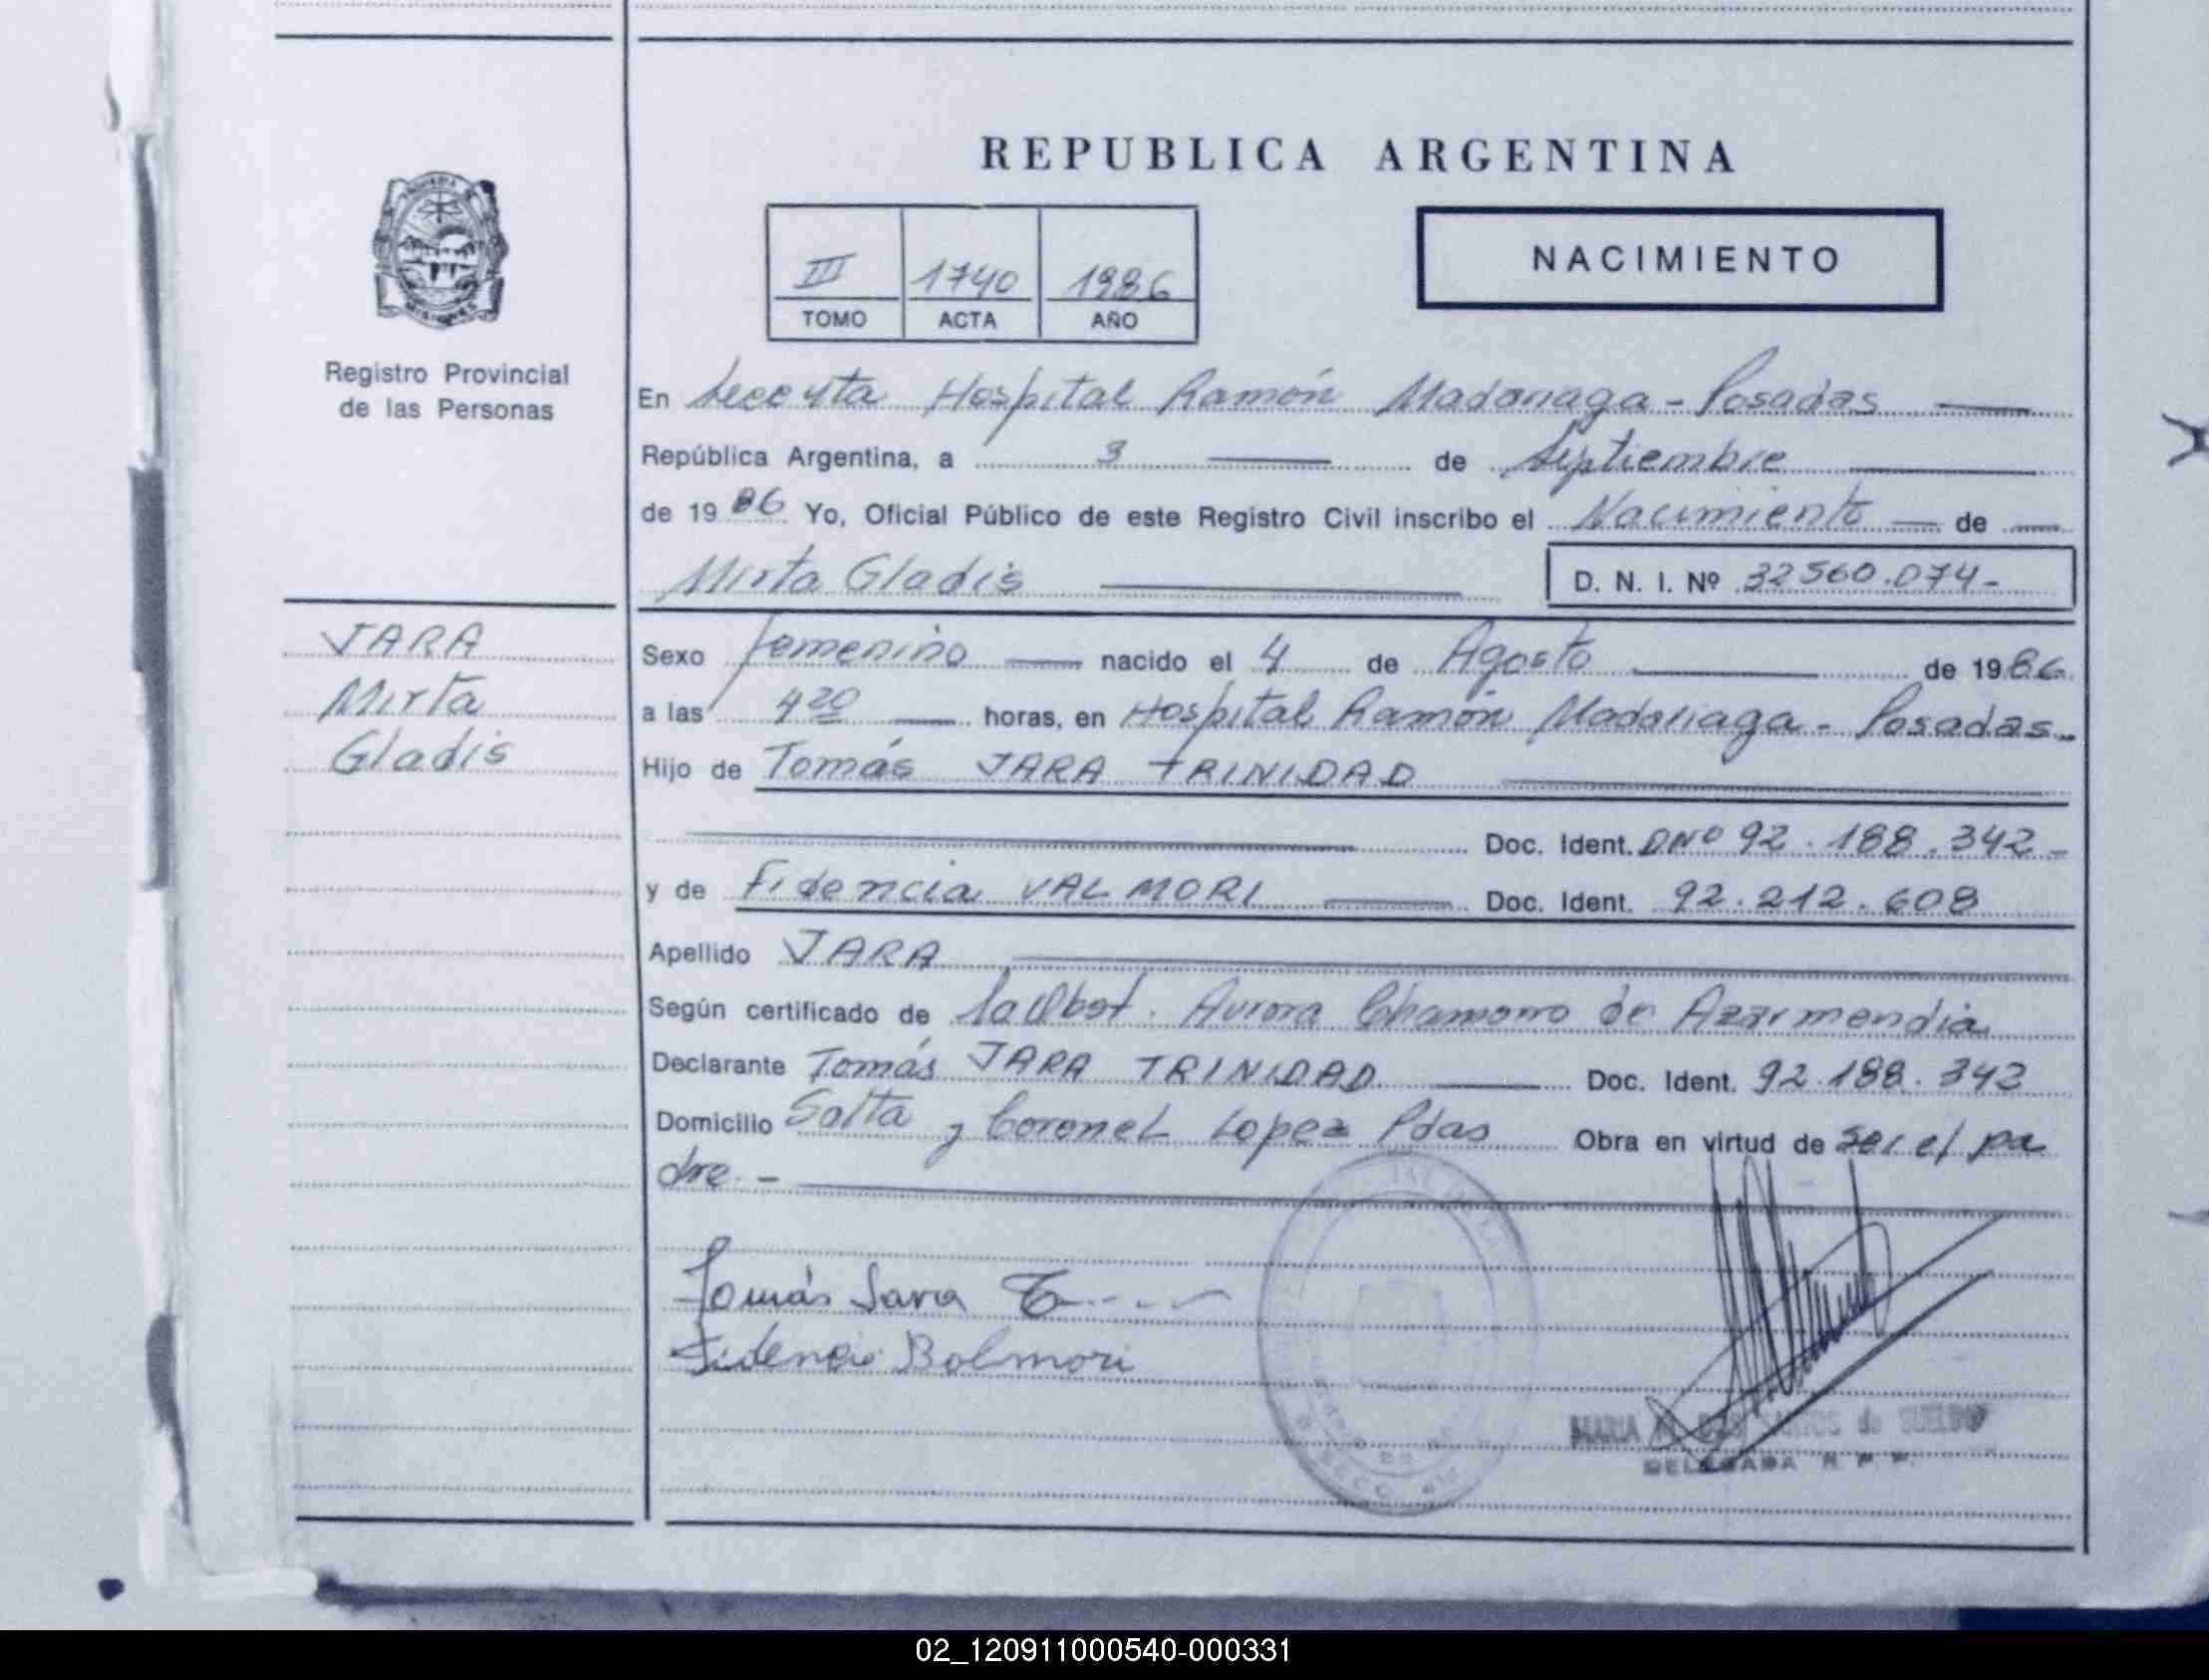 REPUBLICA ARGENTINA
NACIMIENTO
III 1740 1986
TOMO ACTA AÑO
MISIONES
Registro Provincial
de las Personas
En Hospital Ramón Madariaga - Posadas
República Argentina, a 3 de Septiembre
de 1986 Yo, Oficial Público de este Registro Civil inscribo el Nacimiento de
Mirta Gladis D. N. I. Nº 32560.074-
JARA
Mirta
Gladis
Sexo femenino nacido el 4 de Agosto de 1986
a las 4 20 horas, en Hospital Ramón Madariaga - Posadas-
Hijo de Tomás JARA TRINIDAD
Doc. Ident. DNº 92.188.342-
y de Fidencia VALMORI Doc. Ident. 92.212.608
Apellido JARA
Según certificado de la Obst. Aurora Chamorro de Azarmendia
Declarante Tomás JARA TRINIDAD Doc. Ident. 92.188.342
Domicilio Salta y Coronel Lopez Pdas Obra en virtud de ser el pa
dre.-
Tomás Jara T
Fidencia Bolmori
MARIA SANTOS de SUELDO
DELEGADA R. P. P.
02_120911000540-000331